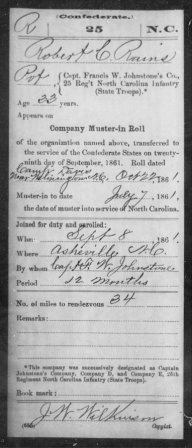 (Confederate.)
R 25 N.C.
Robert C. Rains
Pvt, Capt. Francis W. Johnstone's Co.,
25 Reg't North Carolina Infantry
(State Troops).*
Age 23 years.
Appears on
Company Muster-in Roll
of the organization named above, transferred to
the service of the Confederate States on twenty-
ninth day of September, 1861. Roll dated
Camp Davis
Near Wilmington N.C. Oct 22, 1861.
Muster-in to date July 7, 1861,
the date of muster into service of North Carolina.
Joined for duty and enrolled:
When Sept 8, 1861.
Where Asheville N.C.
By whom Capt F. W. Johnstone
Period 12 months
No. of miles to rendezvous 34
Remarks:
*This company was successively designated as Captain
Johnstone's Company, Company D, and Company E, 25th
Regiment North Carolina Infantry (State Troops).
Book mark:
J. W. Wilkinson
Copyist.